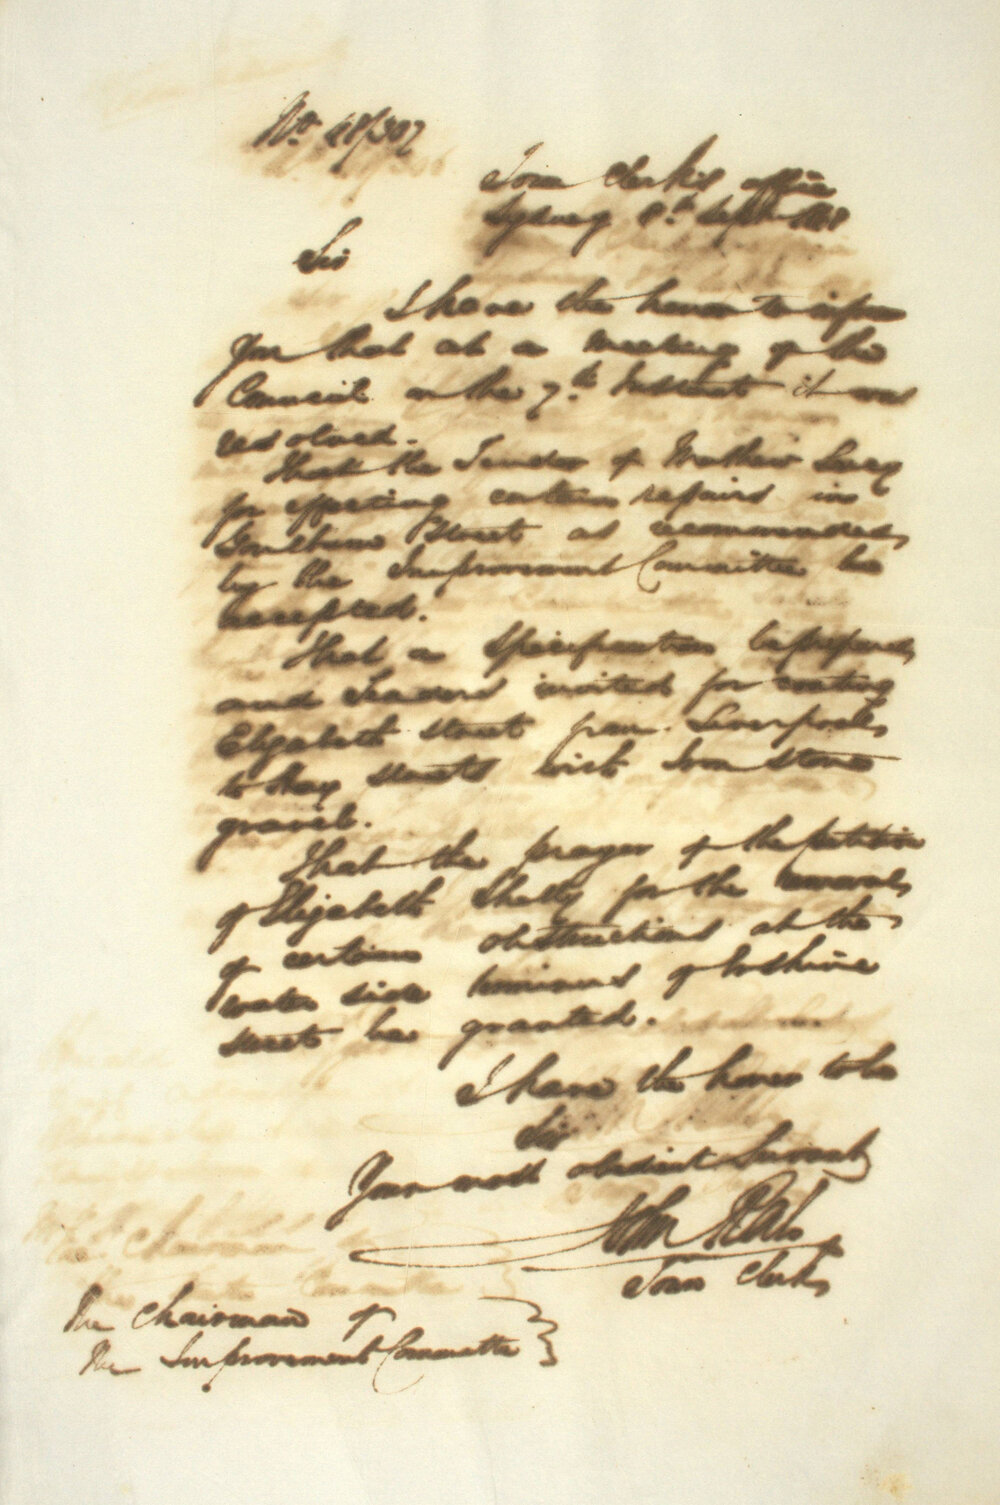 No 48/307
Town Clerk's office
Sydney 8th Septr 1848
Sir
I have the honor to inform
you that at a meeting of the
Council on the 7th Instant it was
resolved.
That the Tender of Mathew
for effecting certain repairs in
Goulburn Street as recommended
by the Improvement Committee be
accepted.
That a Specification be prepared
and Tenders invited for coating
Elizabeth street from Liverpool
to Hay streets with Iron stone
gravel.
That the prayer of the petition
of Elizabeth for the removal
of certain obstructions at the
water side terminus of
street be granted.
I have the honor to be
Sir
Your most obedient Servant
John
Town Clerk
The Chairman of
The Improvement Committee